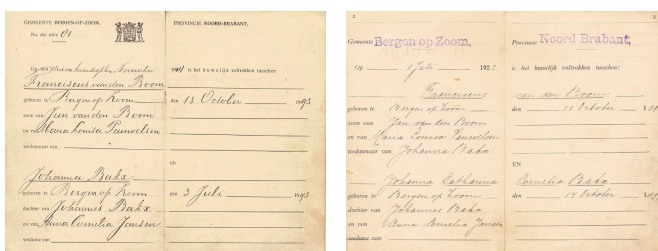 GEMEENTE BERGEN-OP-ZOOM.
No. der akte 61
PROVINCIE NOORD-BRABANT.
Op den November 19 is het huwelijk voltrokken tusschen:
Franciscus van den Boom
geboren te Bergen op Zoom den 13 October 1893
zoon van Jan van den Boom
en van Maria Louisa Pauwelsen
weduwnaar van
EN
Johanna Bakx
geboren te Bergen op Zoom den 3 Juli 1893
dochter van Johannes Bakx
en van Anna Cornelia Jansen
weduwe van
2
3
Gemeente Bergen op Zoom,
Provincie Noord Brabant,
Op 1 Juli 192 is het huwelijk voltrokken tusschen:
Franciscus van den Boom
geboren te Bergen op Zoom den October
zoon van Jan van den Boom
en van Maria Louisa Pauwelsen
weduwnaar van Johanna Bakx
EN
Johanna Catharina Cornelia Bakx
geboren te Bergen op Zoom den 14 October
dochter van Johannes Bakx
en van Anna Cornelia Jansen
weduwe van